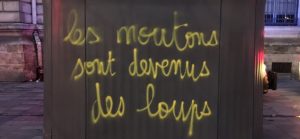 les moutons
sont devenus
des loups